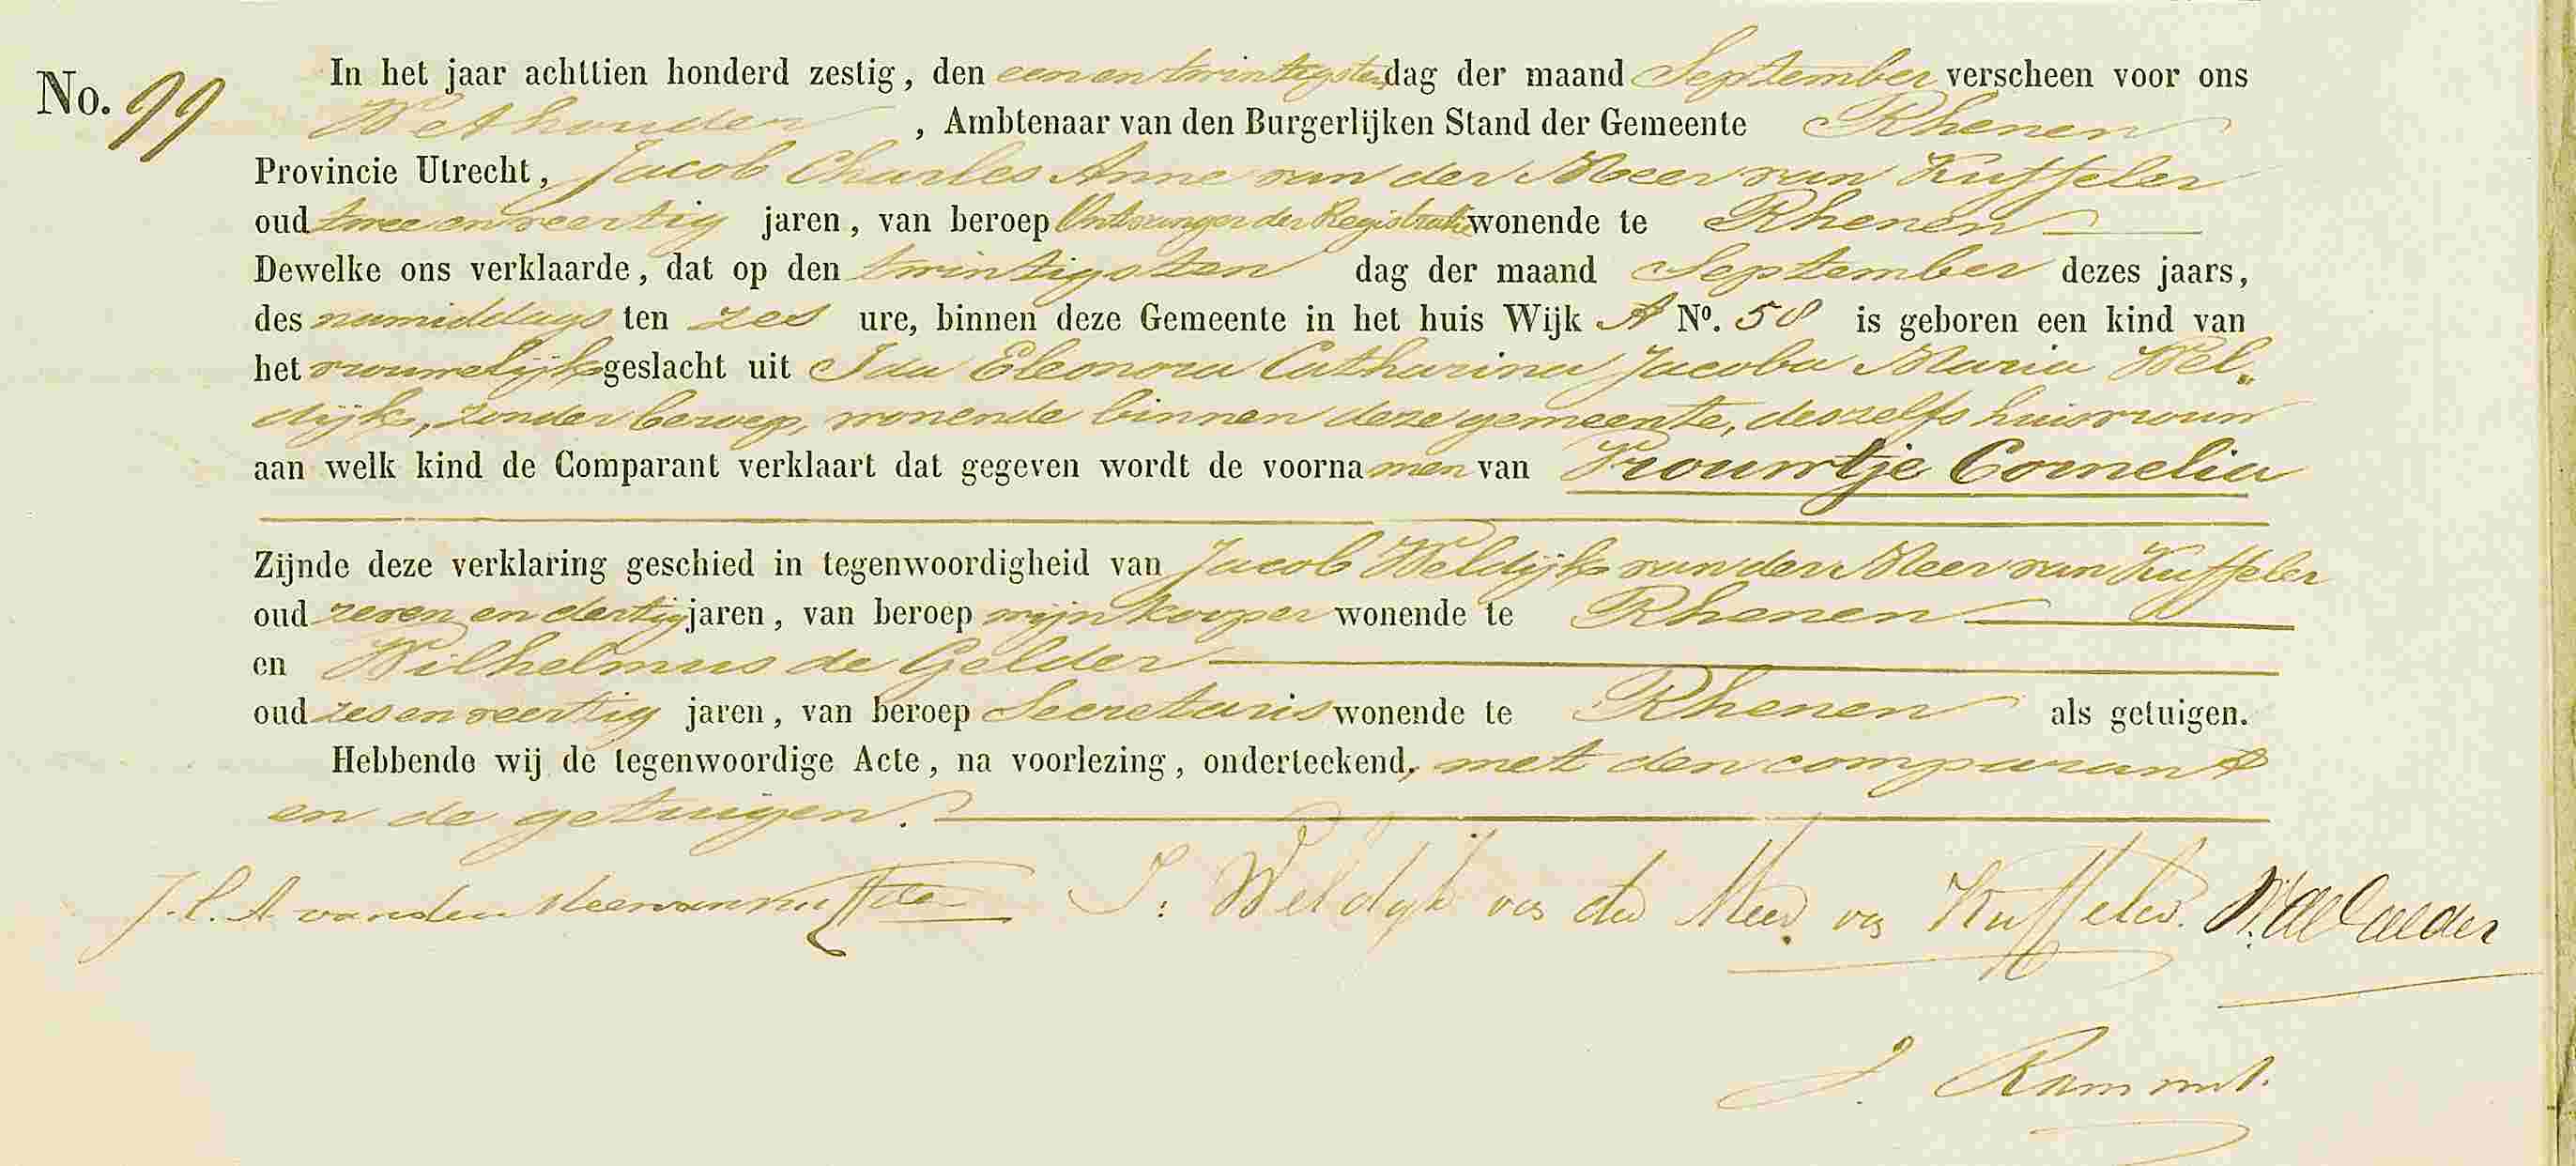 No. 99
In het jaar achttien honderd zestig, den een en twintigsten dag der maand September verscheen voor ons
Wethouder, Ambtenaar van den Burgerlijken Stand der Gemeente Rhenen
Provincie Utrecht, Jacob Charles Anne van der Meer van Kuffeler
oud twee en veertig jaren, van beroep Ontvanger der Registratie wonende te Rhenen
Dewelke ons verklaarde, dat op den twintigsten dag der maand September dezes jaars,
des namiddags ten zes ure, binnen deze Gemeente in het huis Wijk A No. 58 is geboren een kind van
het vrouwelijk geslacht uit Ida Eleonora Catharina Jacoba Maria Wel„
dijk, zonder beroep, wonende binnen deze gemeente, deszelfs huisvrouw
aan welk kind de Comparant verklaart dat gegeven wordt de voornamen van Vrouwtje Cornelia
Zijnde deze verklaring geschied in tegenwoordigheid van Jacob Weldijk van der Meer van Kuffeler
oud zeven en dertig jaren, van beroep wijnkooper wonende te Rhenen
en Wilhelmus de Gelder
oud zes en veertig jaren, van beroep Secretaris wonende te Rhenen als getuigen.
Hebbende wij de tegenwoordige Acte, na voorlezing, onderteekend, met den comparant
en de getuigen.
J. C. A van der Meer van Kuffeler J: Weldijk van der Meer van Kuffeler. W. de Gelder
J.